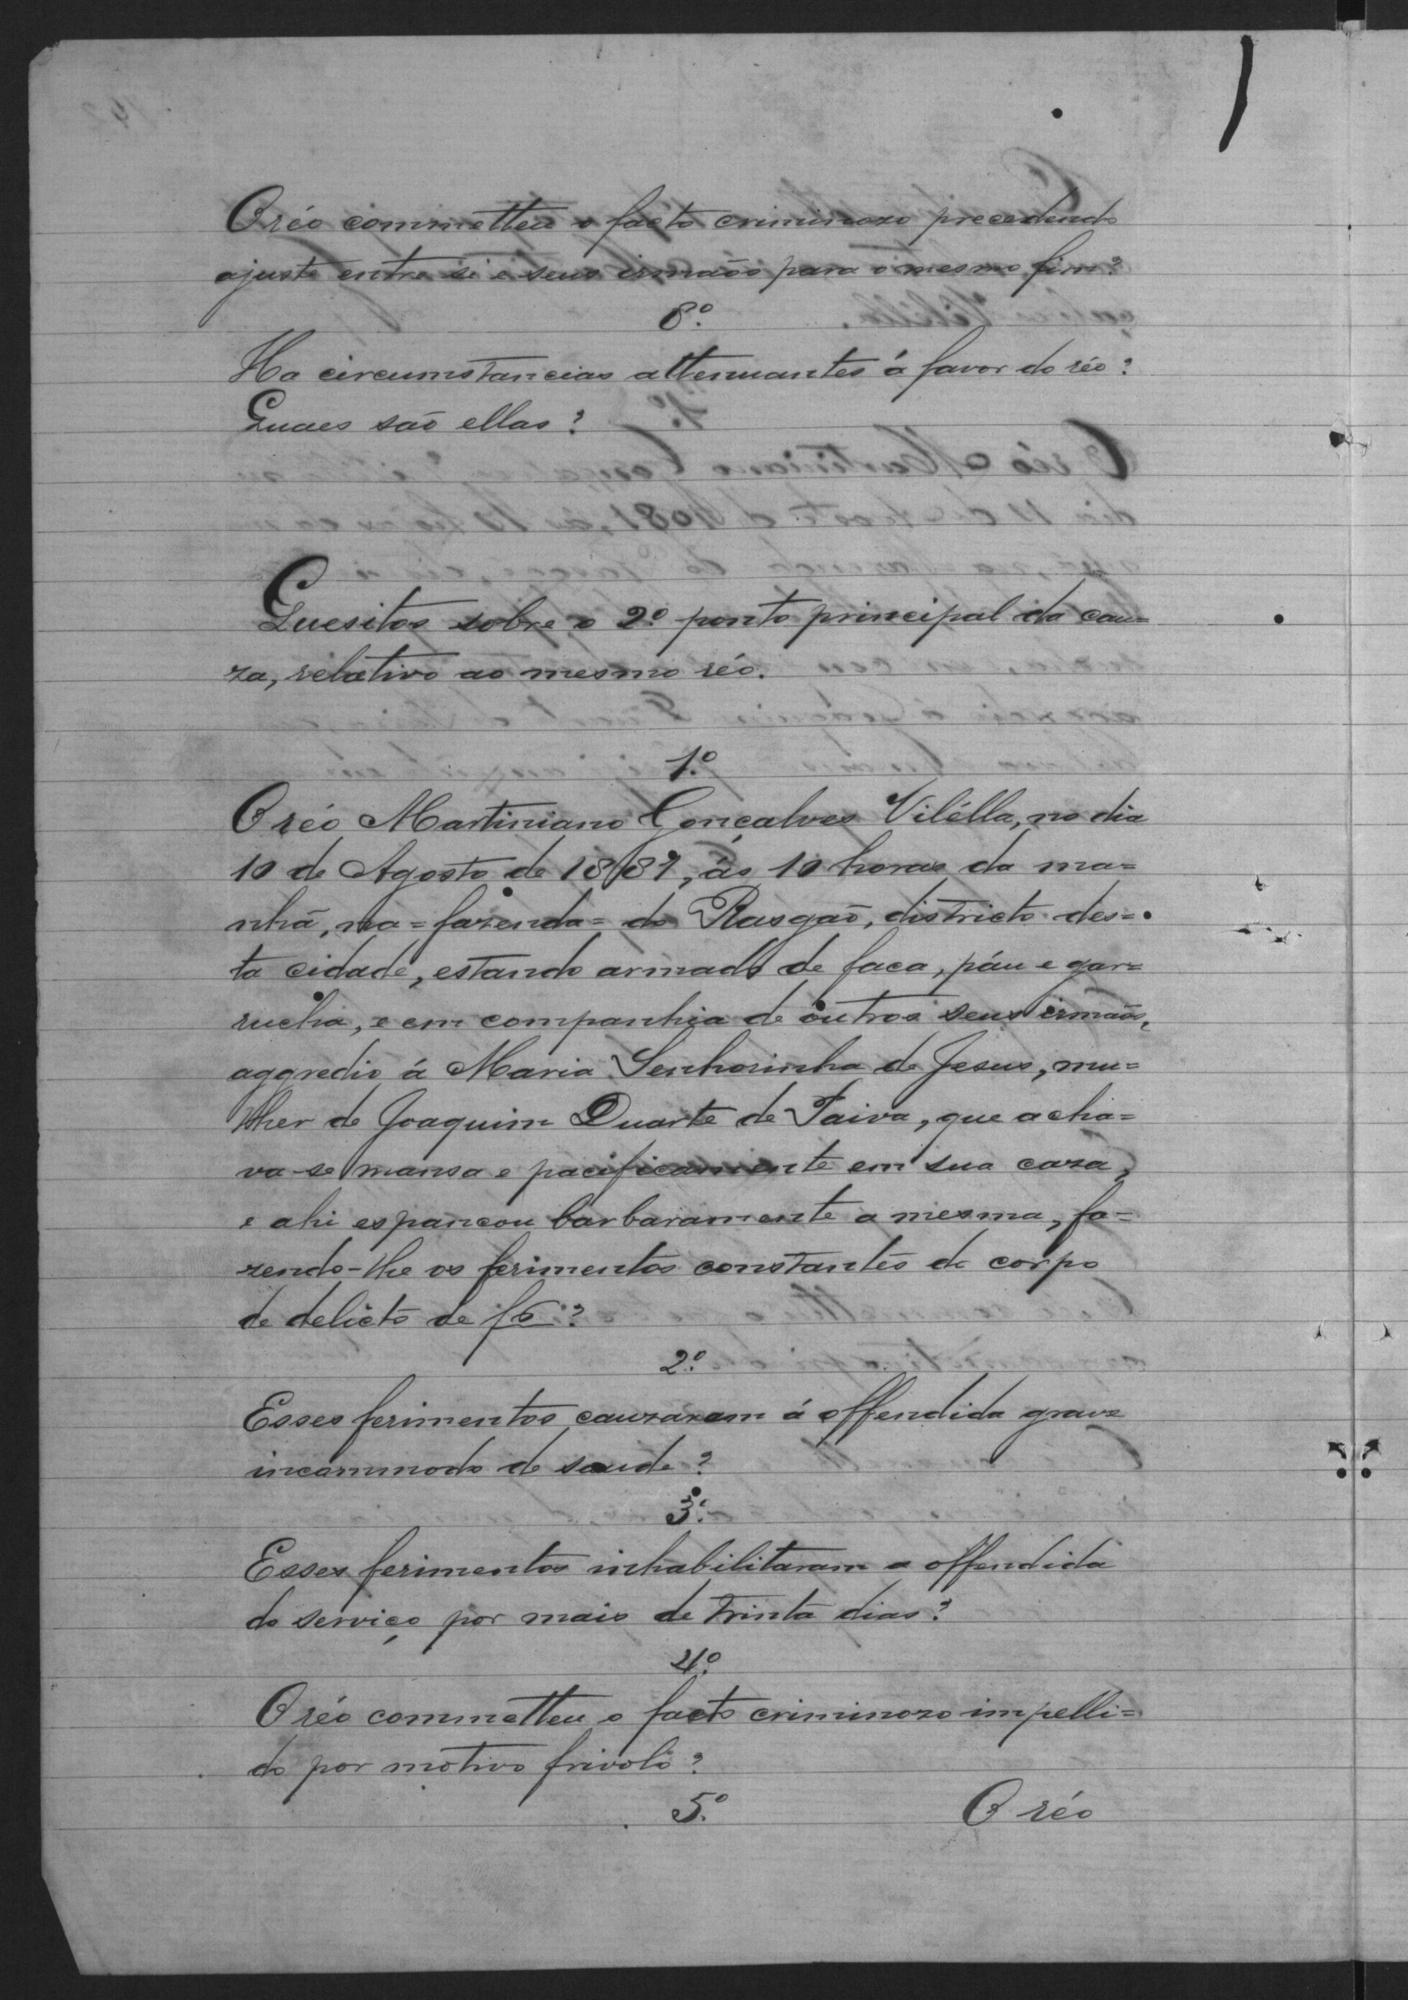 O réo commetteu o facto criminozo precedendo
ajuste entre si e seus irmãos para o mesmo fim?
8º.
Ha circumstancias attenuantes á favor do réo?
Quaes são ellas?
Quesitos sobre o 2º. ponto principal da cau=
za, relativo ao mesmo réo.
1º.
O réo Martiniano Gonçalves Vilélla, no dia
10 de Agosto de 1881, ás 10 horas da ma=
nhã, na=fazenda=do Rasgão, districto des=
ta cidade, estando armado de faca, páu e gar=
rucha, e em companhia de outros seus irmãos,
aggredio á Maria Senhorinha de Jesus, mu=
lher de Joaquim Duarte de Paiva, que acha=
va-se mansa e pacificamente em sua caza,
e ahi espancou barbaramente a mesma, fa=
zendo-lhe os ferimentos constantes do corpo
de delicto de f6?
2º.
Esses ferimentos cauzaram á offendida grave
incommodo de saude?
3º.
Esses ferimentos inhabilitaram a offendida
do serviço por mais de trinta dias?
4º.
O réo commetteu o facto criminozo impelli=
do por motivo frivolo?
5º.
O réo